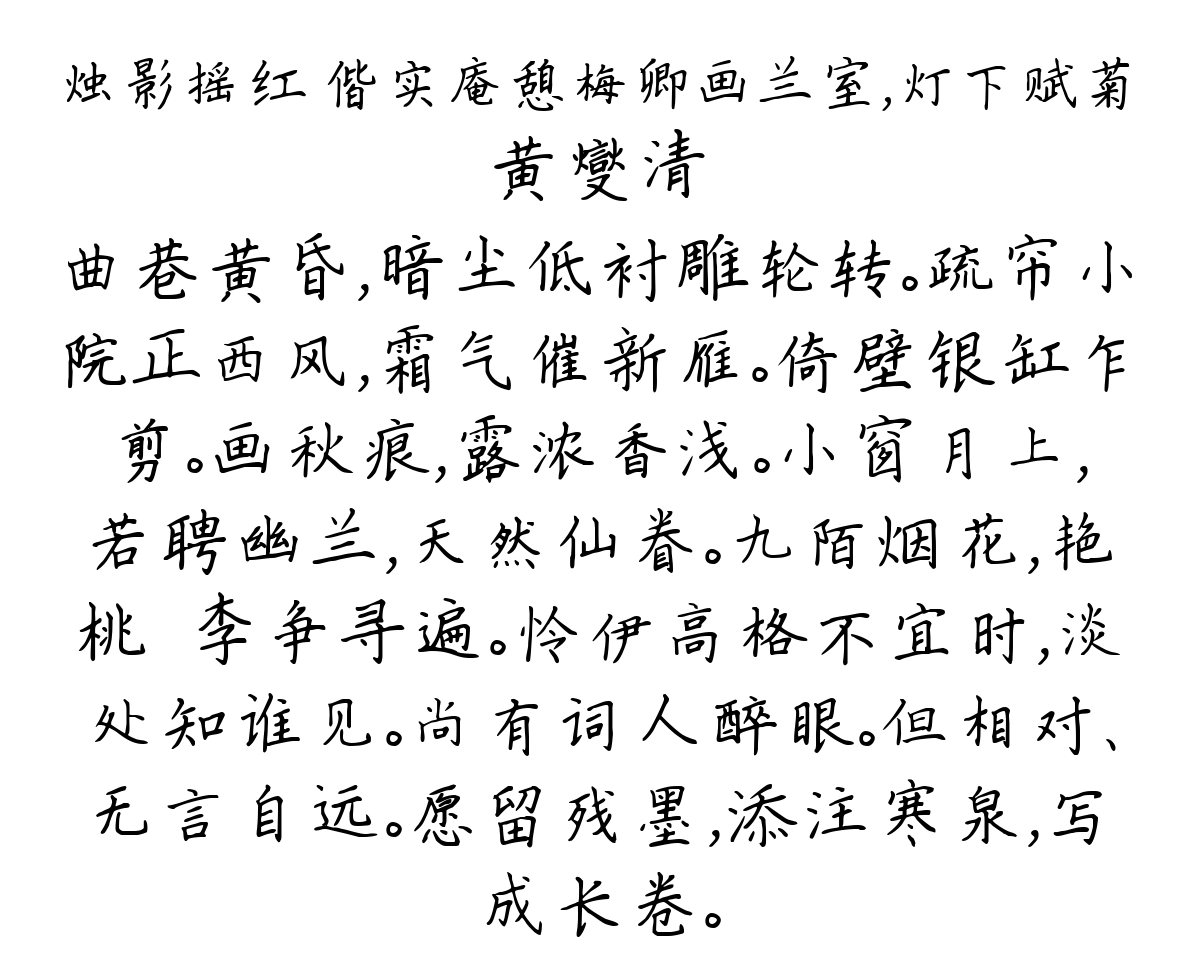 烛影摇红 偕实庵憩梅卿画兰室,灯下赋菊
黄燮清
曲巷黄昏,暗尘低衬雕轮转。疏帘小
院正西风,霜气催新雁。倚壁银缸乍
剪。画秋痕,露浓香浅。小窗月上,
若聘幽兰,天然仙眷。九陌烟花,艳
桃 李争寻遍。怜伊高格不宜时,淡
处知谁见。尚有词人醉眼。但相对、
无言自远。愿留残墨,添注寒泉,写
成长卷。